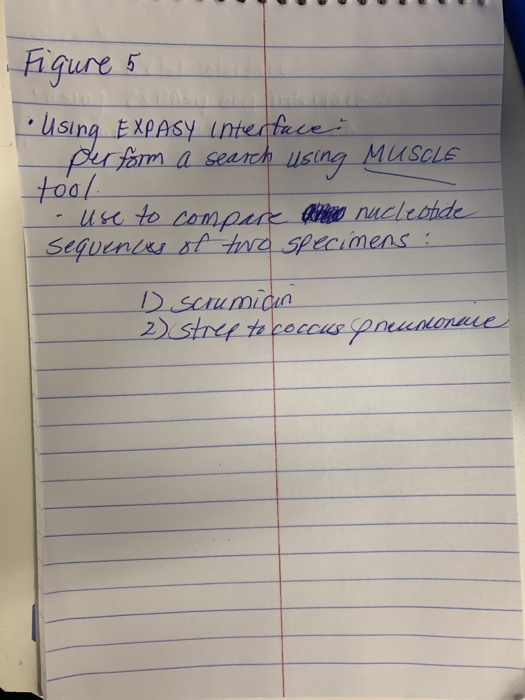 Figure 5
• Using EXPASY interface:
perform a search using MUSCLE
tool.
- use to compare nucleotide
sequences of two specimens:
1) scrumicin
2) streptococcus pneumonaie